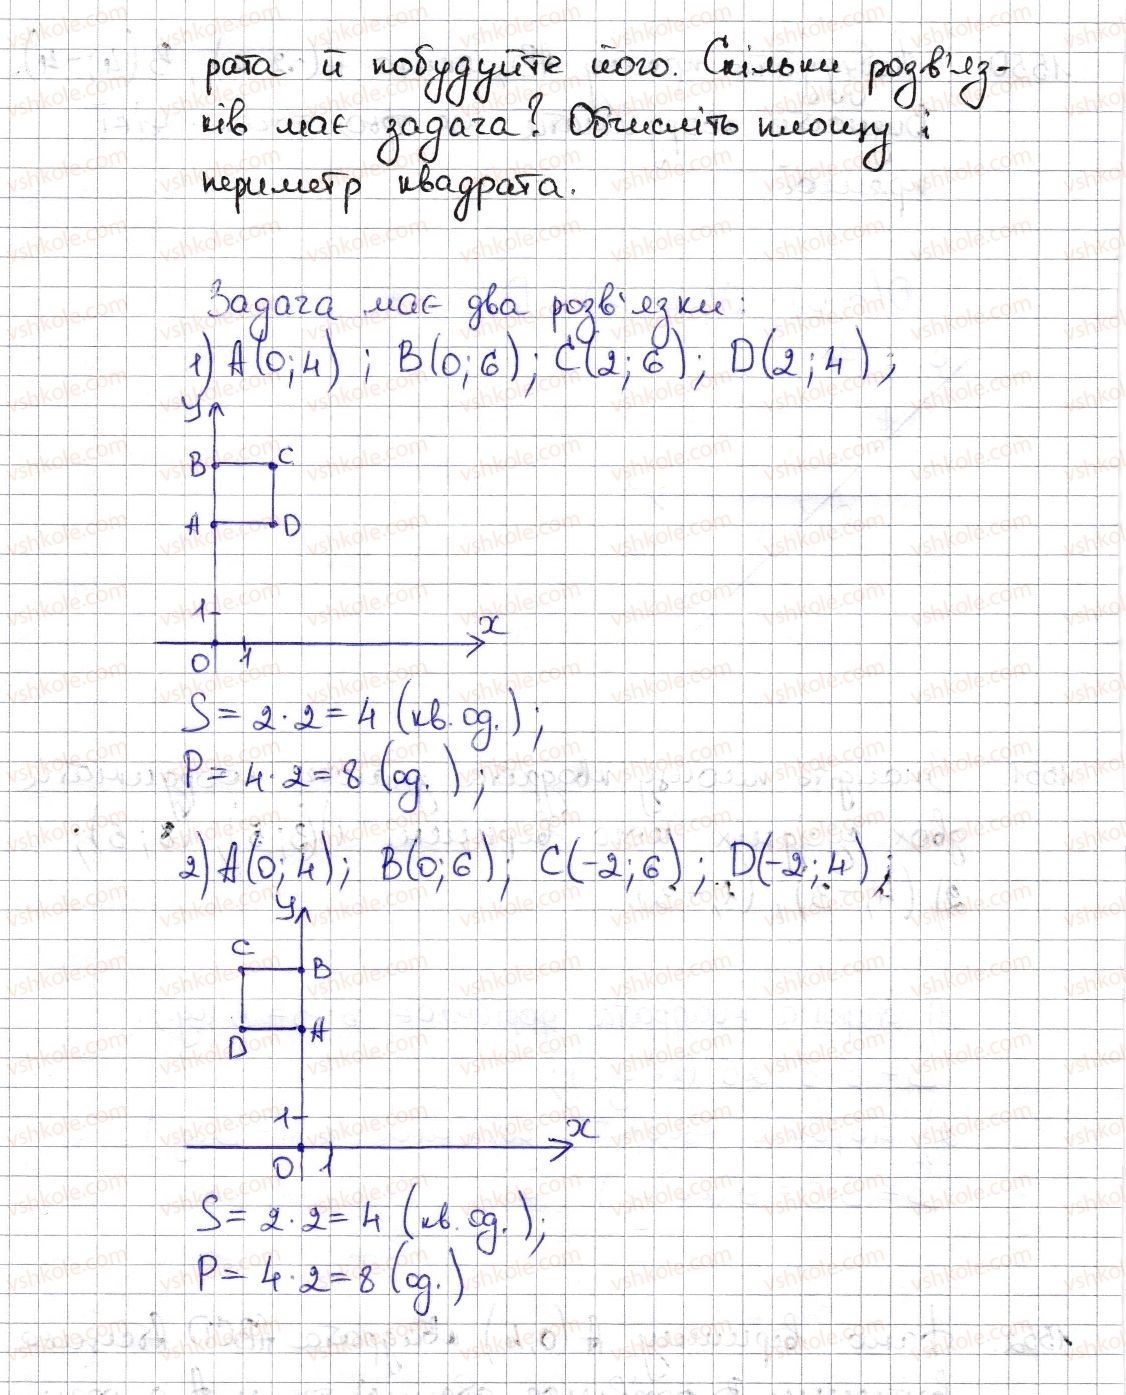 рата й побудуйте його. Скільки розв'яз-
ків має задача? Обчисліть площу і
периметр квадрата.
Задача має два розв'язки:
1) A(0;4) ; B(0;6); C(2;6); D(2;4);
y
B C
A D
1
x
0 1
S = 2·2 = 4 (кв. од.);
P = 4·2 = 8 (од.);
2) A(0;4); B(0;6); C(-2;6); D(-2;4);
y
C B
D A
1
x
0 1
S = 2·2 = 4 (кв. од.);
P = 4·2 = 8 (од.)